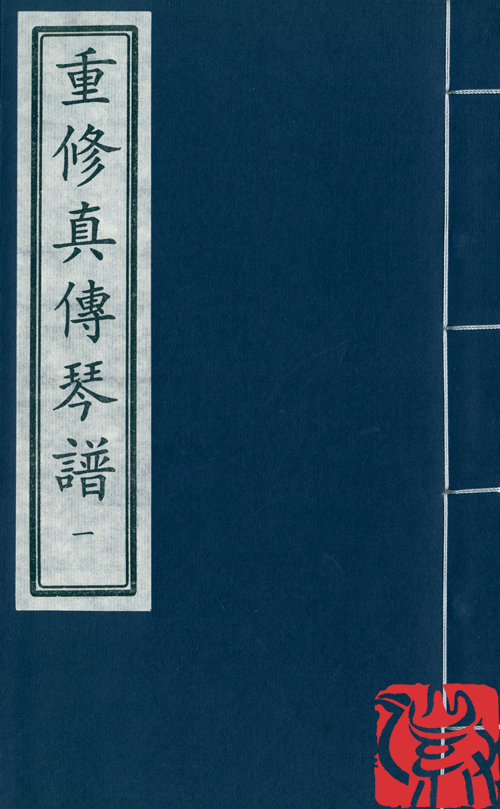 重修真傳琴譜
一